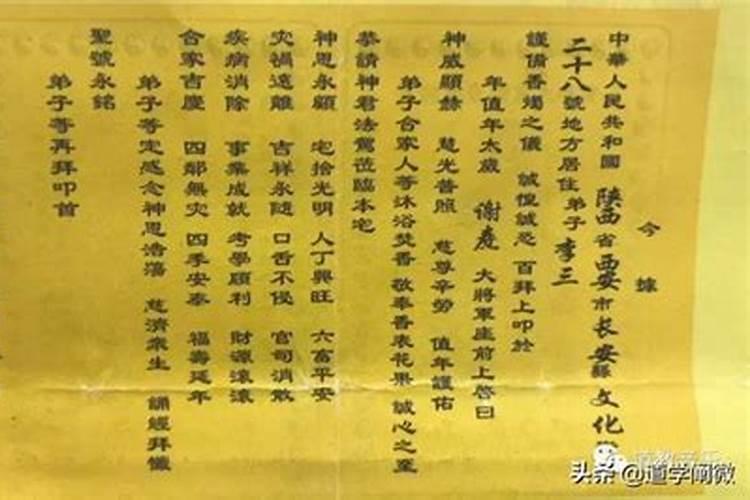 今據
中華人民共和國 陝西省西安市長安縣文化
二十八號地方居住弟子李三
謹備香燭之儀 誠惶誠恐 百拜上叩於
年值年太歲 謝慶 大將軍座前上啓曰
神威顯赫 慈光普照 慈尊辛勞 值年護佑
弟子合家人等沐浴焚香 敬奉香表花果 誠心之至
恭請神君法駕蒞臨本宅
神恩永顧 宅捨光明 人丁興旺 六富平安
災禍遠離 吉祥永隨 口舌不侵 官司消散
疾病消除 事業成就 考學順利 財源滾滾
合家吉慶 四鄰無災 四季安泰 福壽延年
弟子等定感念神恩浩蕩 慈濟衆生 誦經拜懺
聖號永銘
弟子等再拜叩首
头条 @道学阐微